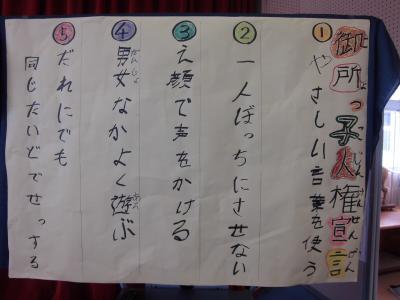 御所っ子人権宣言
①やさしい言葉を使う
②一人ぼっちにさせない
③え顔で声をかける
④男女なかよく遊ぶ
⑤だれにでも
同じたいどでせっする